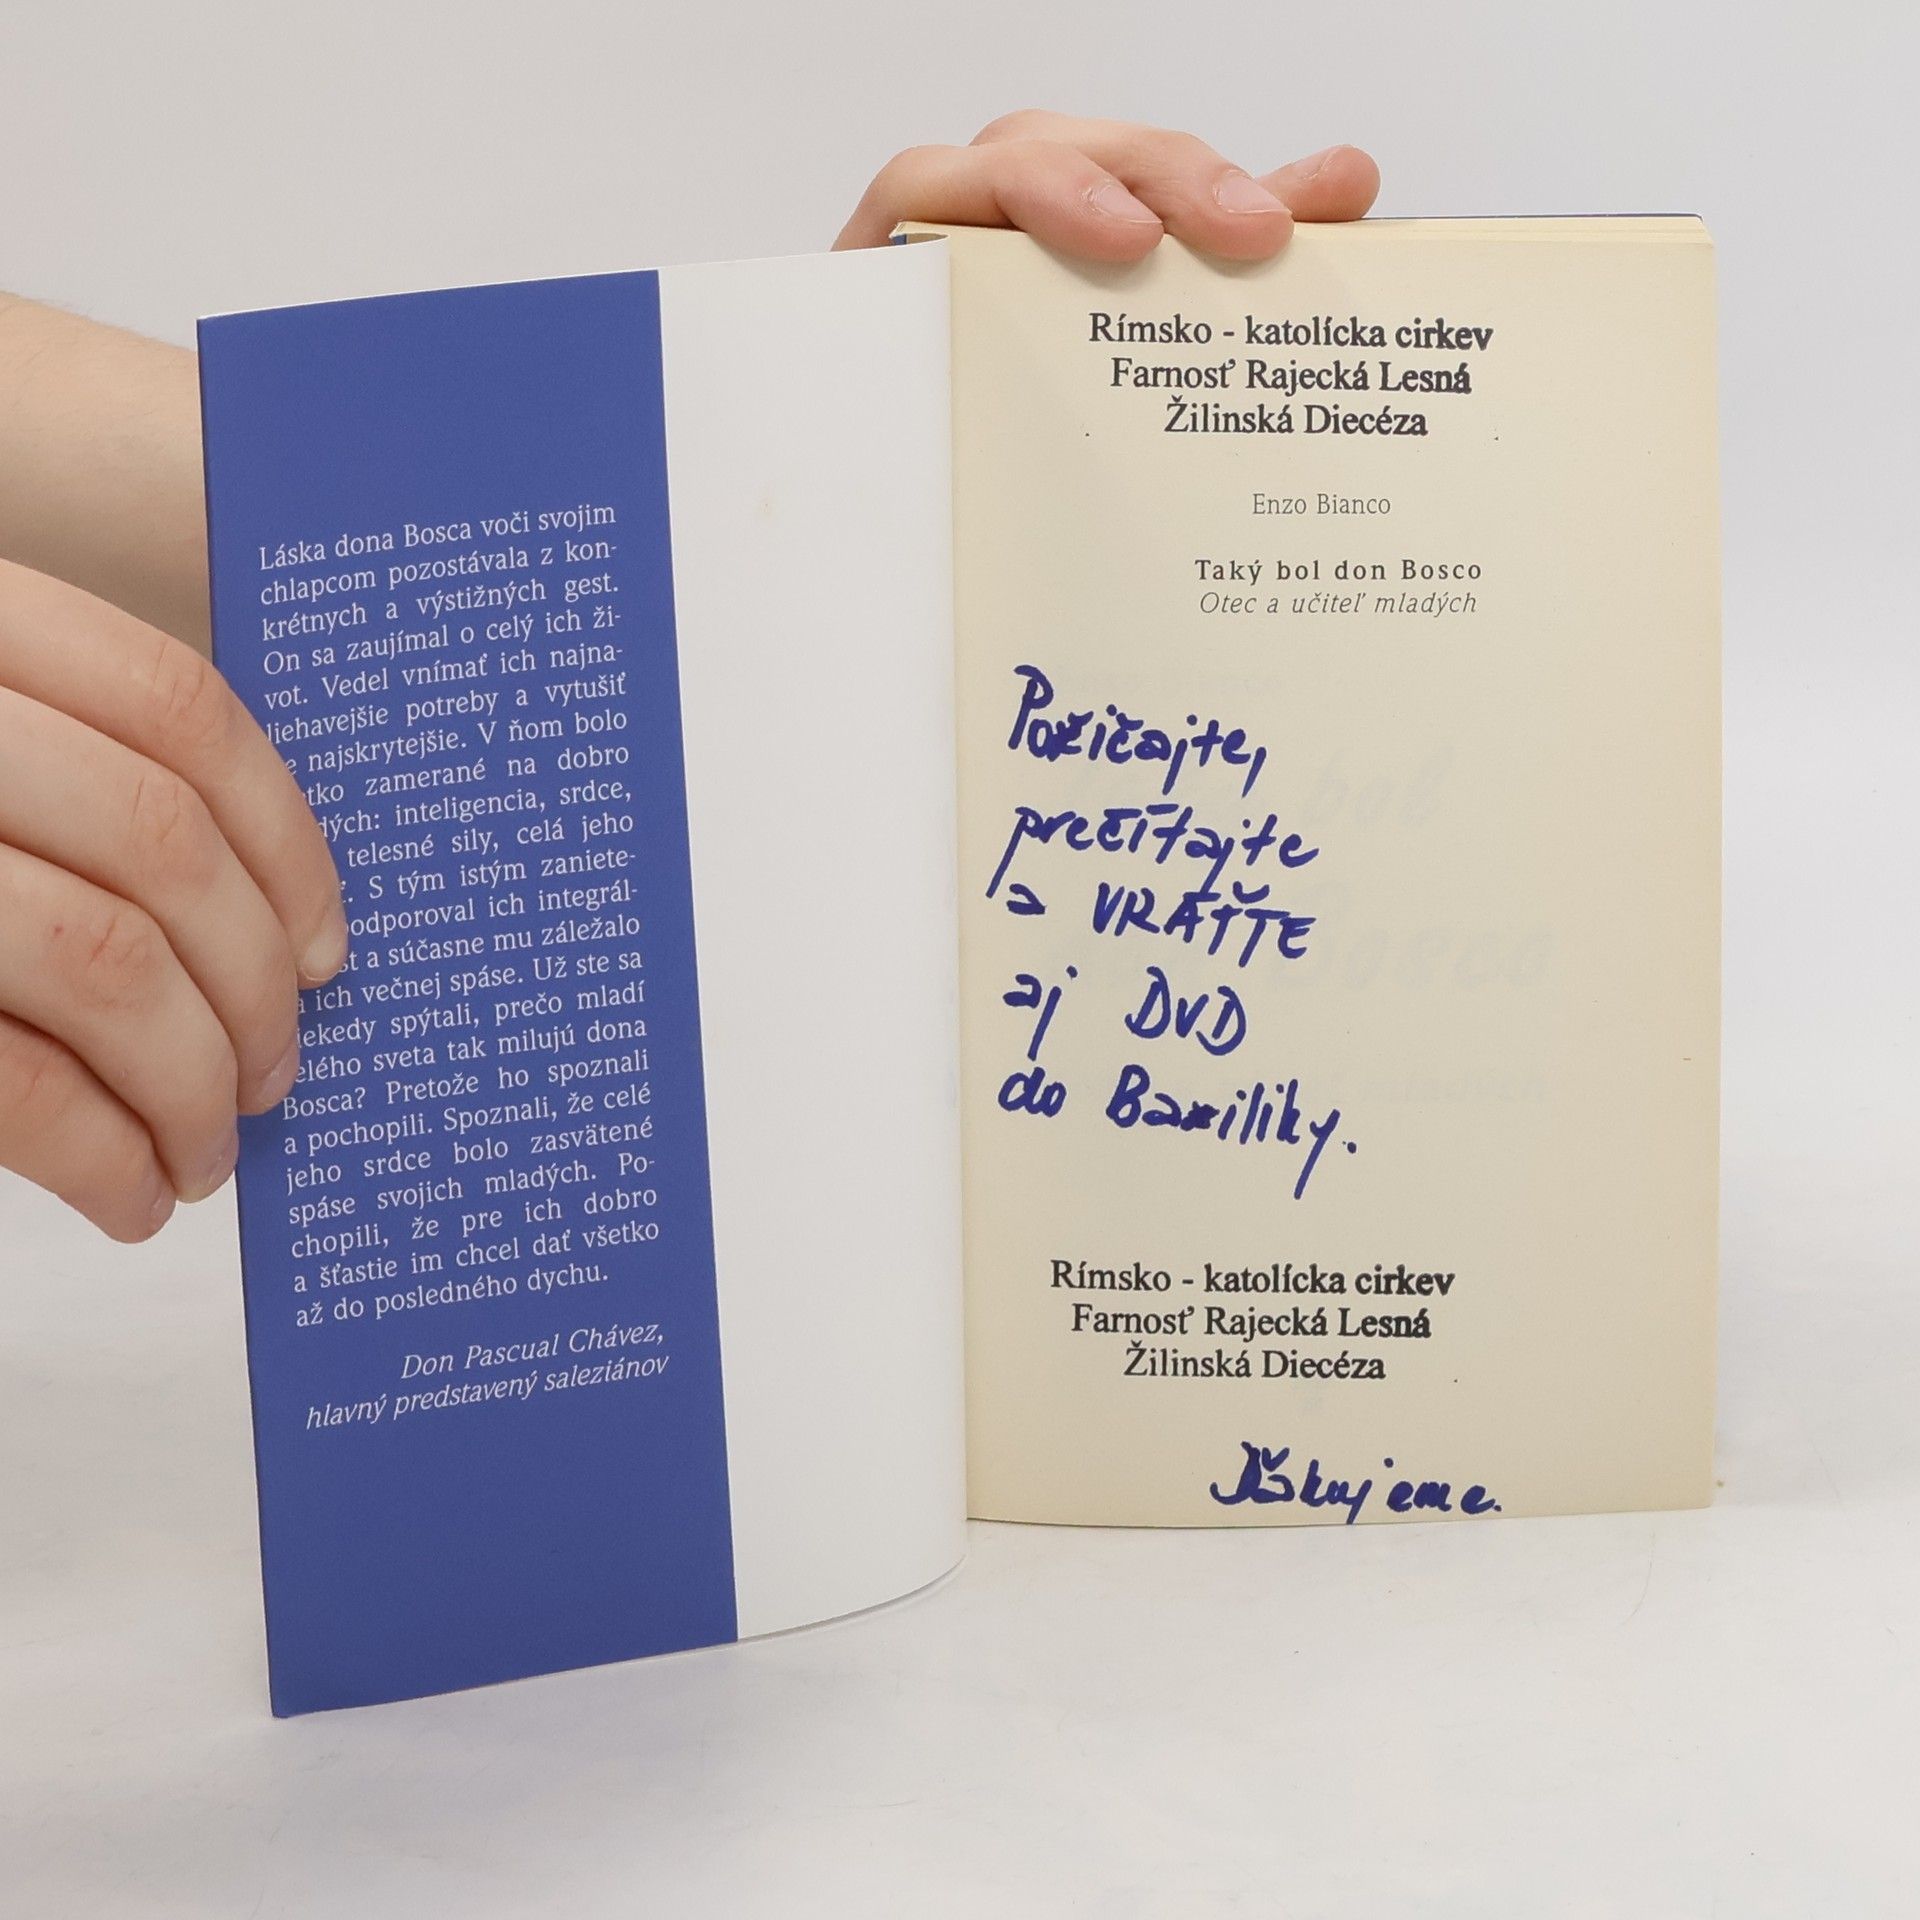 Láska dona Bosca voči svojim
chlapcom pozostávala z kon-
krétnych a výstižných gest.
On sa zaujímal o celý ich ži-
vot. Vedel vnímať ich najna-
liehavejšie potreby a vytušiť
najskrytejšie. V ňom bolo
zamerané na dobro
inteligencia, srdce,
telesné sily, celá jeho
S tým istým zaniete-
podporoval ich integrál-
a súčasne mu záležalo
ich večnej spáse. Už ste sa
spýtali, prečo mladí
sveta tak milujú dona
Bosca? Pretože ho spoznali
a pochopili. Spoznali, že celé
jeho srdce bolo zasvätené
spáse svojich mladých. Po-
chopili, že pre ich dobro
a šťastie im chcel dať všetko
až do posledného dychu.
Don Pascual Chávez,
hlavný predstavený saleziánov
Rímsko - katolícka cirkev
Farnosť Rajecká Lesná
Žilinská Diecéza
Enzo Bianco
Taký bol don Bosco
Otec a učiteľ mladých
Požičajte,
prečítajte
a VRÁŤTE
aj DVD
do Baziliky.
Rímsko - katolícka cirkev
Farnosť Rajecká Lesná
Žilinská Diecéza
Ďakujeme.